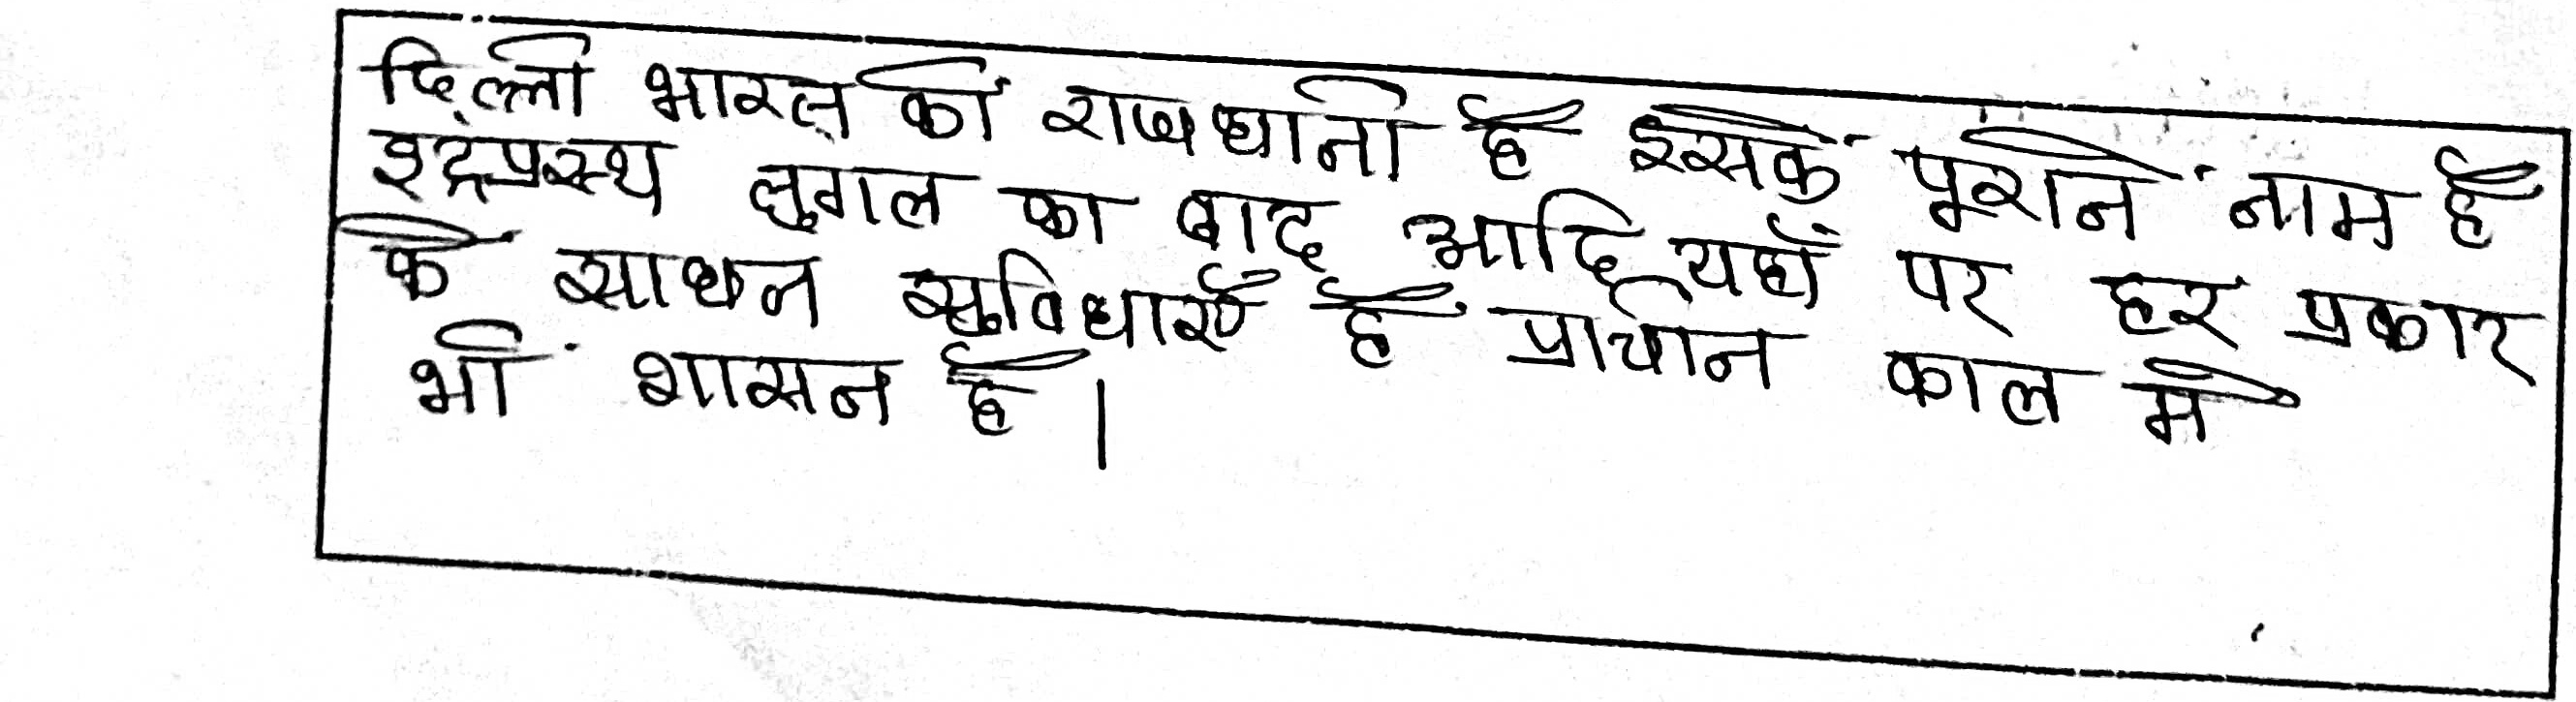 दिल्ली भारत की राजधानी है इसके पूराने नाम है
इंद्रप्रस्थ लुगल का बाद आदि यहाँ पर हर प्रकार
के साधन सुविधाएँ है प्राचीन काल मे
भी शासन है।